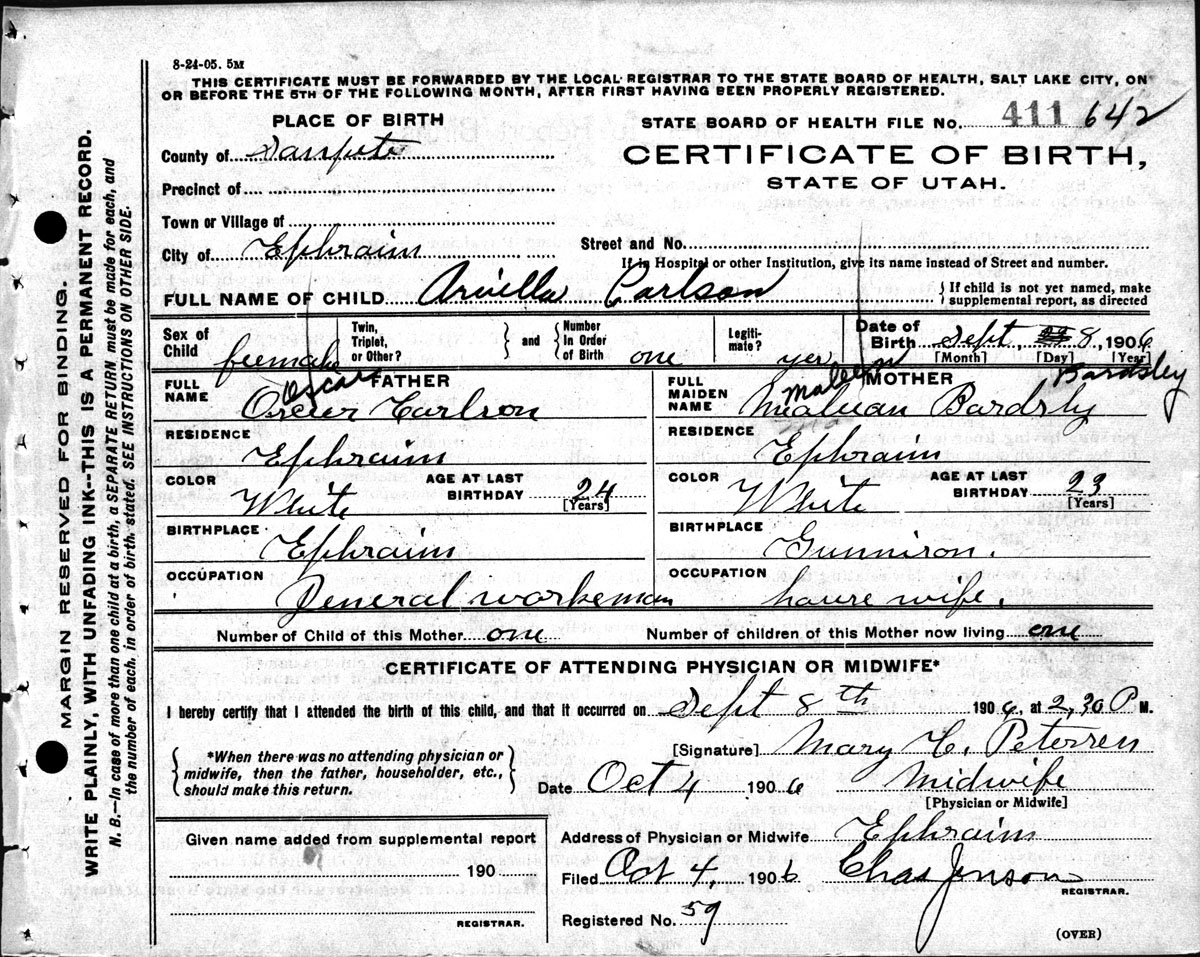 8-24-05. 5M
THIS CERTIFICATE MUST BE FORWARDED BY THE LOCAL REGISTRAR TO THE STATE BOARD OF HEALTH, SALT LAKE CITY, ON
OR BEFORE THE 5TH OF THE FOLLOWING MONTH, AFTER FIRST HAVING BEEN PROPERLY REGISTERED.
PLACE OF BIRTH
STATE BOARD OF HEALTH FILE No. 411 642
County of Sanpete
CERTIFICATE OF BIRTH,
Precinct of
STATE OF UTAH.
Town or Village of
City of Ephraim
Street and No.
If in Hospital or other Institution, give its name instead of Street and number.
FULL NAME OF CHILD Arvilla Carlson
{ If child is not yet named, make
supplemental report, as directed
Sex of Child feemale
Twin, Triplet, or Other?
and Number In Order of Birth one
Legitimate? yes
Date of Birth Sept, 8, 1906
[Month] [Day] [Year]
FATHER
MOTHER
FULL NAME Oscar Carlson
Oscar
FULL MAIDEN NAME Bardsly
Bardsley
RESIDENCE Ephraim
RESIDENCE Ephraim
COLOR White AGE AT LAST BIRTHDAY 24 [Years]
COLOR White AGE AT LAST BIRTHDAY 23 [Years]
BIRTHPLACE Ephraim
BIRTHPLACE Gunnison.
OCCUPATION General workeman
OCCUPATION house wife.
Number of Child of this Mother one
Number of children of this Mother now living one
CERTIFICATE OF ATTENDING PHYSICIAN OR MIDWIFE*
I hereby certify that I attended the birth of this child, and that it occurred on Sept 8th 1906, at 2,30 P M.
*When there was no attending physician or
midwife, then the father, householder, etc.,
should make this return.
[Signature] Mary C. Petersen
Date Oct 4 1906 Midwife
[Physician or Midwife]
Given name added from supplemental report
190
REGISTRAR.
Address of Physician or Midwife Ephraim
Filed Oct 4, 1906 Chas Jenson
REGISTRAR.
Registered No. 59
(OVER)
MARGIN RESERVED FOR BINDING.
WRITE PLAINLY, WITH UNFADING INK--THIS IS A PERMANENT RECORD.
N. B.—In case of more than one child at a birth, a SEPARATE RETURN must be made for each, and
the number of each, in order of birth, stated. SEE INSTRUCTIONS ON OTHER SIDE.